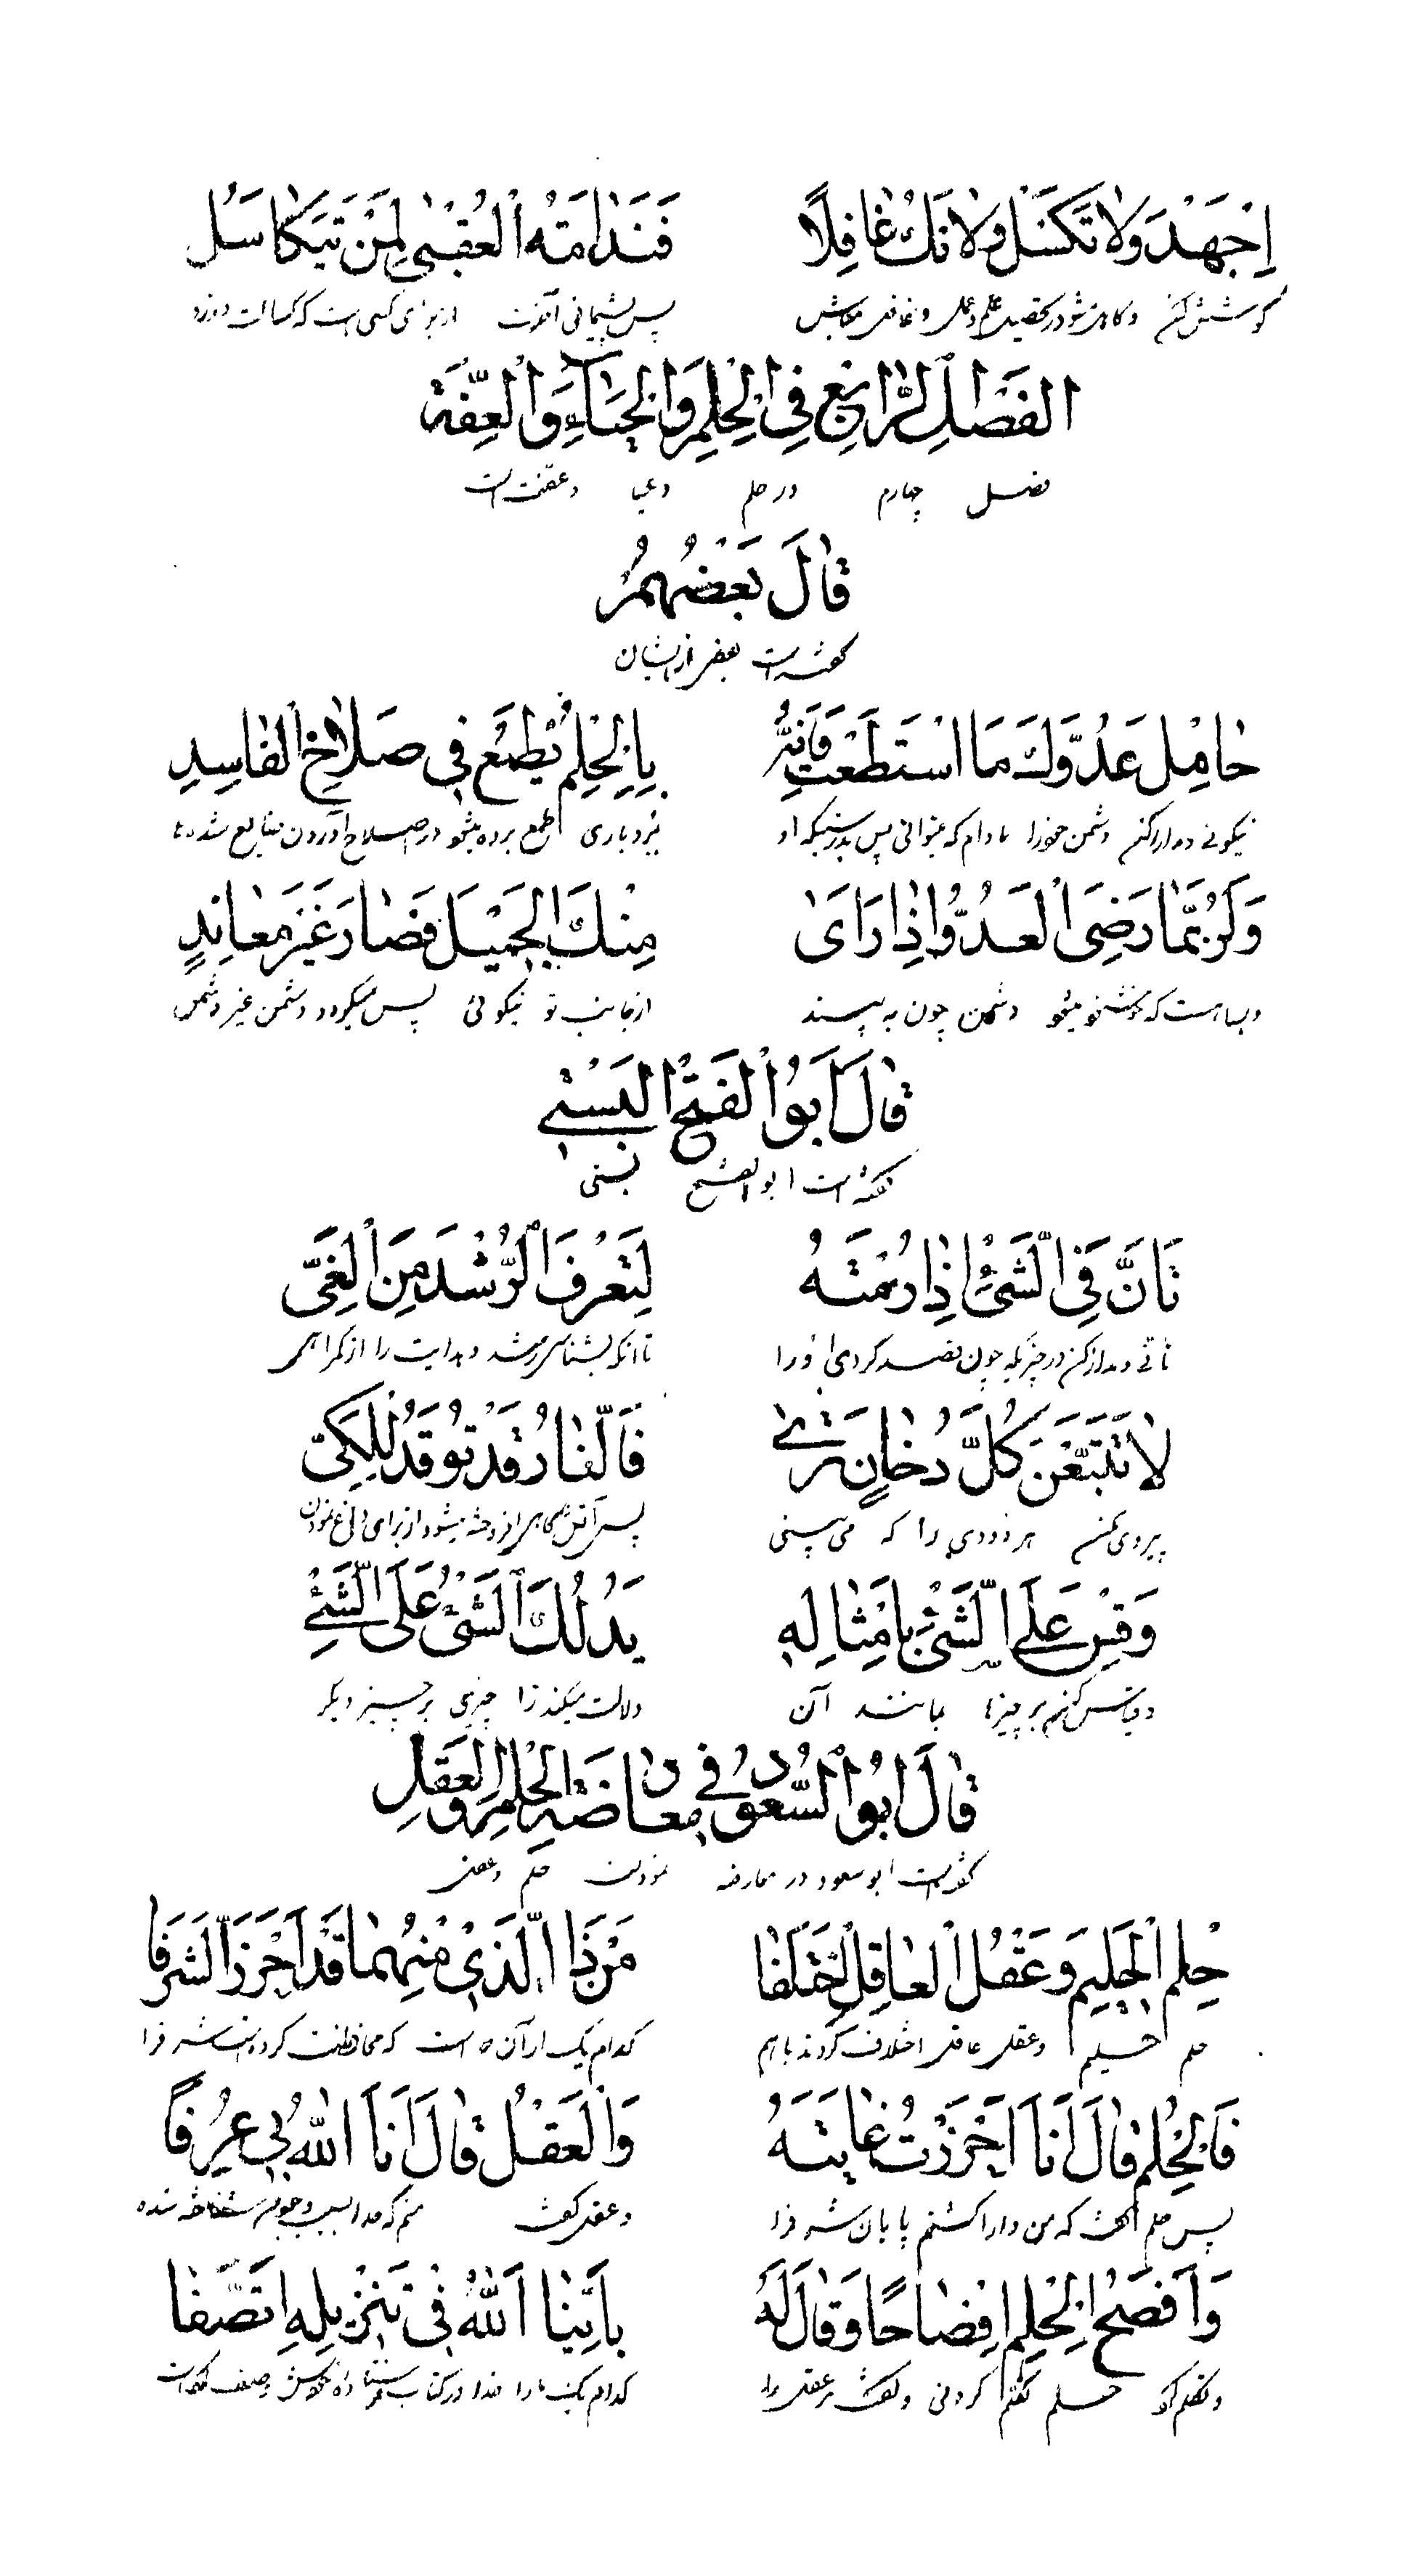 اِجْهَدْ وَلا تَكْسَلْ وَلا تَكُ غافِلًا فَنَدامَةُ الْعُقْبىٰ لِمَنْ يَتَكاسَلُ
كوشش كن و كاهل مشو در تحصيل علم و عمل و غافل مباش پس پشيمانى آخرت از براى كسى است كه كسالت ورزد
الفَصْلِ الرّابِعِ فِى الْحِلْمِ وَالْحَياءِ وَالْعِفَّةِ
فصل چهارم در حلم و حيا و عفّت است
قالَ بَعْضُهُمْ
گفته است بعضى از ايشان
حامِلْ عَدُوَّكَ مَا اسْتَطَعْتَ فَاِنَّهُ بِالْحِلْمِ يُطْمَعُ فى صَلاحِ الْفاسِدِ
نيكوئى و مدارا كن دشمن خود را مادام كه بتوانى پس بدرستيكه او ببردبارى طمع برده ميشود در اصلاح آوردن ضايع شده ها
وَلَرُبَّما رَضِىَ الْعَدُوُّ اِذا رَاىٰ مِنْكَ الْجَميلَ فَصارَ غَيْرَ مُعانِدٍ
و بسا هست كه خوشنود ميشود دشمن چون به بيند از جانب تو نيكوئى پس ميگردد دشمن غير دشمن
قالَ اَبُوالْفَتْحِ الْبَسْتى
گفته است ابوالفتح بستى
تَاَنَّ فِى الشَّىْءِ اِذا رُمْتَهُ لِتَعْرِفَ الرُّشْدَ مِنَ الْغَىِّ
تأنّى و مدارا كن در چيزيكه چون قصد كردى او را تا آنكه بشناسى رشد و هدايت را از گمراهى
لا تَتْبَعَنْ كُلَّ دُخانٍ تَرىٰ فَالنّارُ قَدْ تُوقَدُ لِلْكَىِّ
پيروى مكن هر دودى را كه مى بينى پس آتش گاهى افروخته ميشود از براى داغ نمودن
وَقِسْ عَلَى الشَّىْءِ بِاَمْثالِهِ يَدُلُّكَ الشَّىْءُ عَلَى الشَّىْءِ
و قياس كن بر چيزها بمانند آن دلالت ميكند ترا چيزى بر چيز ديگر
قالَ اَبُوالسُّعُودِ فى مُعارَضَةِ الْحِلْمِ وَالْعَقْلِ
گفته است ابوسعود در معارضه نمودن حلم و عقل
حِلْمُ الْحَليمِ وَعَقْلُ الْعاقِلِ اخْتَلَفا مَنْ ذَا الَّذى مِنْهُما قَدْ اَحْرَزَ الشَّرَفا
حلم حليم و عقل عاقل اختلاف كردند باهم كدام يك از آن ها است كه محافظت كرده است شرف را
فَالْحِلْمُ قالَ اَنَا اَحْرَزْتُ غايَتَهُ وَالْعَقْلُ قالَ اَنَا اللّٰهُ بى عُرِفا
پس حلم گفت كه من دارا گشتم پايان شرف را و عقل گفت منم كه خدا بسبب وجود من شناخته شده
وَاَفْصَحَ الْحِلْمُ اِفْصاحًا وَقالَ لَهُ بِاَيِّنا اَللّٰهُ فى تَنْزيلِهِ اتَّصَفا
و تكلم كرد حلم تكلم كردنى و گفت مر عقل را كدام يك ما را خدا در كتاب خودش وصف كرده است